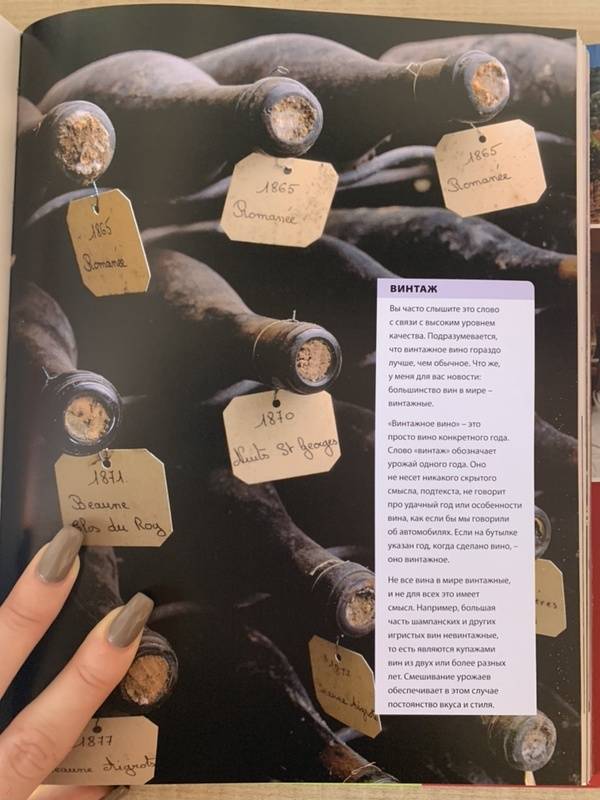 1865
Romanée
1865
Romanée
1865
Romanée
1870
Nuits St Georges
1871
Beaune
Clos du Roy
1877
Beaune Aigrots
ВИНТАЖ
Вы часто слышите это слово
с связи с высоким уровнем
качества. Подразумевается,
что винтажное вино гораздо
лучше, чем обычное. Что же,
у меня для вас новости:
большинство вин в мире –
винтажные.
«Винтажное вино» – это
просто вино конкретного года.
Слово «винтаж» обозначает
урожай одного года. Оно
не несет никакого скрытого
смысла, подтекста, не говорит
про удачный год или особенности
вина, как если бы мы говорили
об автомобилях. Если на бутылке
указан год, когда сделано вино, –
оно винтажное.
Не все вина в мире винтажные,
и не для всех это имеет
смысл. Например, большая
часть шампанских и других
игристых вин невинтажные,
то есть являются купажами
вин из двух или более разных
лет. Смешивание урожаев
обеспечивает в этом случае
постоянство вкуса и стиля.